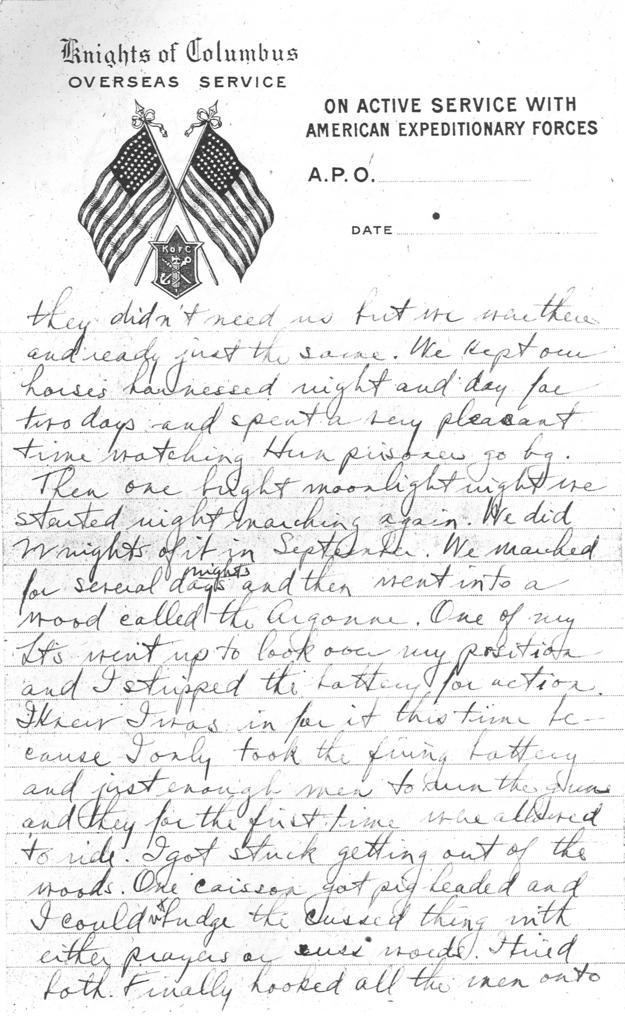 Knights of Columbus
OVERSEAS SERVICE
ON ACTIVE SERVICE WITH
AMERICAN EXPEDITIONARY FORCES
A.P.O.
DATE
K of C
they didn't need us but we were there
and ready just the same. We kept our
horses harnessed night and day for
two days and spent a very pleasant
time watching Hun prisoners go by.
Then one bright moonlight night we
started night marching again. We did
nights of it in September. We marched
nights
for several days and then went into a
wood called the Argonne. One of my
Lt's went up to look over my position
and I stripped the battery for action.
I knew I was in for it this time be-
cause I only took the firing battery
and just enough men to run the guns
and they for the first time were allowed
to ride. I got stuck getting out of the
woods. One caisson got pig headed and
I couldn't budge the cussed thing with
either prayers or cuss words. I tried
both. Finally hooked all the men onto